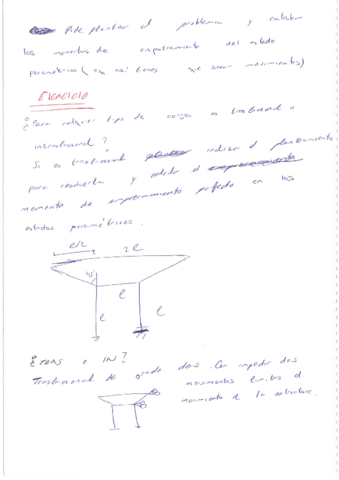 Pide plantear el problema y calcular
los momentos de empotramiento del estado
paramétrico (
Ejercicio
¿Para cualquier tipo de carga es traslacional o
intraslacional?
Si es traslacional indicar el planteamiento
para resolverla y calcular el
momento de empotramiento perfecto en los
estados paramétricos.
l/2
2l
45
l
l
l
¿TRAS o IN?
Traslacional de grado dos. Con impedir dos
movimientos limites el
movimiento de la estructura.